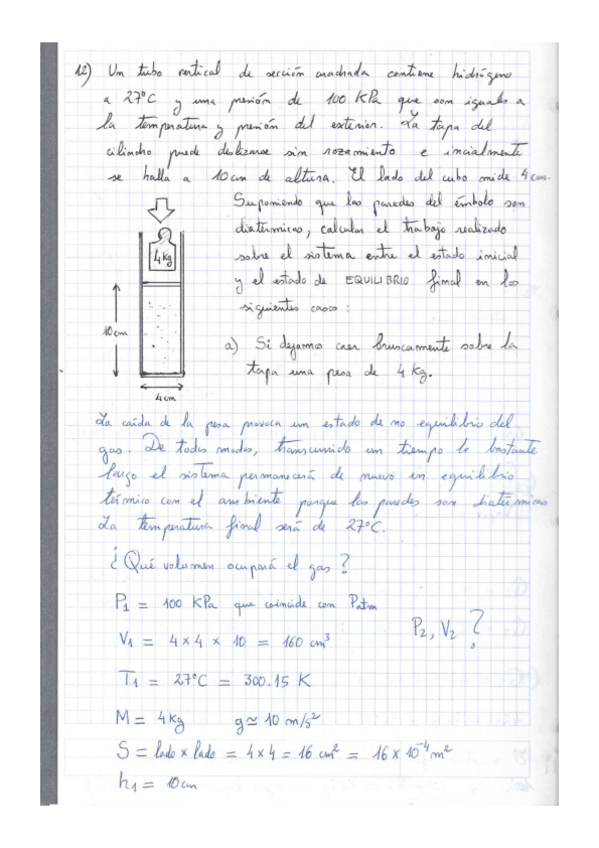 12) Un tubo vertical de sección cuadrada contiene hidrógeno
a 27°C y una presión de 100 KPa que son iguales a
la temperatura y presión del exterior. La tapa del
cilindro puede deslizarse sin rozamiento e inicialmente
se halla a 10 cm de altura. El lado del cubo mide 4 cm.
Suponiendo que las paredes del émbolo son
diatérmicas, calcular el trabajo realizado
sobre el sistema entre el estado inicial
y el estado de EQUILIBRIO final en los
siguientes casos:
4 kg
10 cm
4 cm
a) Si dejamos caer bruscamente sobre la
tapa una pesa de 4 Kg.
La caída de la pesa provoca un estado de no equilibrio del
gas. De todos modos, transcurrido un tiempo lo bastante
largo el sistema permanecerá de nuevo en equilibrio
térmico con el ambiente porque las paredes son diatérmicas
La temperatura final será de 27°C.
¿Qué volumen ocupará el gas?
P1 = 100 KPa que coincide con Patm
V1 = 4 × 4 × 10 = 160 cm³
P2, V2 ?
T1 = 27°C = 300.15 K
M = 4 Kg g ≃ 10 m/s²
S = lado × lado = 4 × 4 = 16 cm² = 16 × 10⁻⁴ m²
h1 = 10 cm